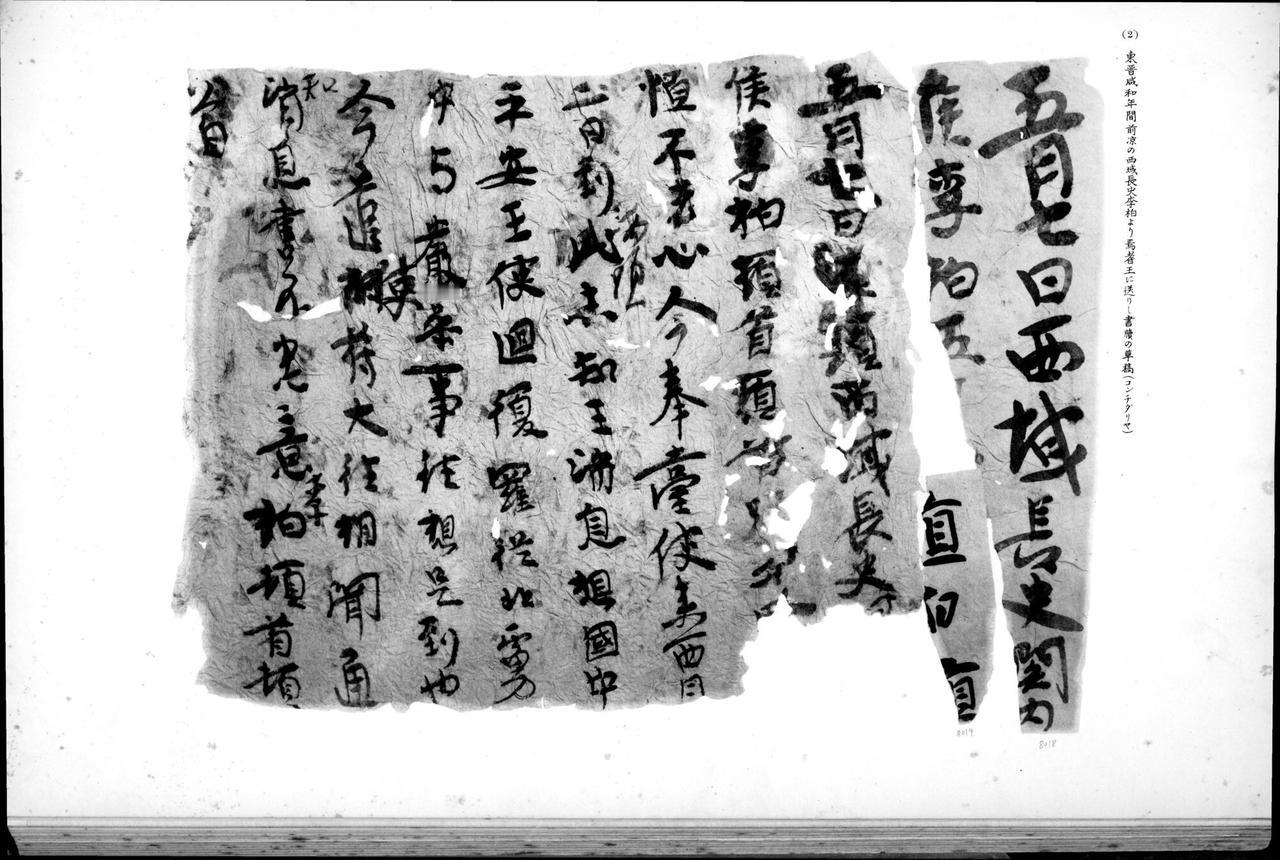 (2) 東晋咸和年間前凉の西域長史李柏より焉耆王に送りし書牘の草稿(コンチダリヤ)
五月七日西域長史関内
侯李柏五
五月七日 西域長史
侯李柏頓首頓首
恒不去心今奉臺使来西月
二日到此 海頭 未知王消息想國中
平安王使迴復羅従北虜
中与嚴参事往想是到也
今遣使苻大往相聞通
知消息書不悉意李柏頓首頓
首
8019
8018